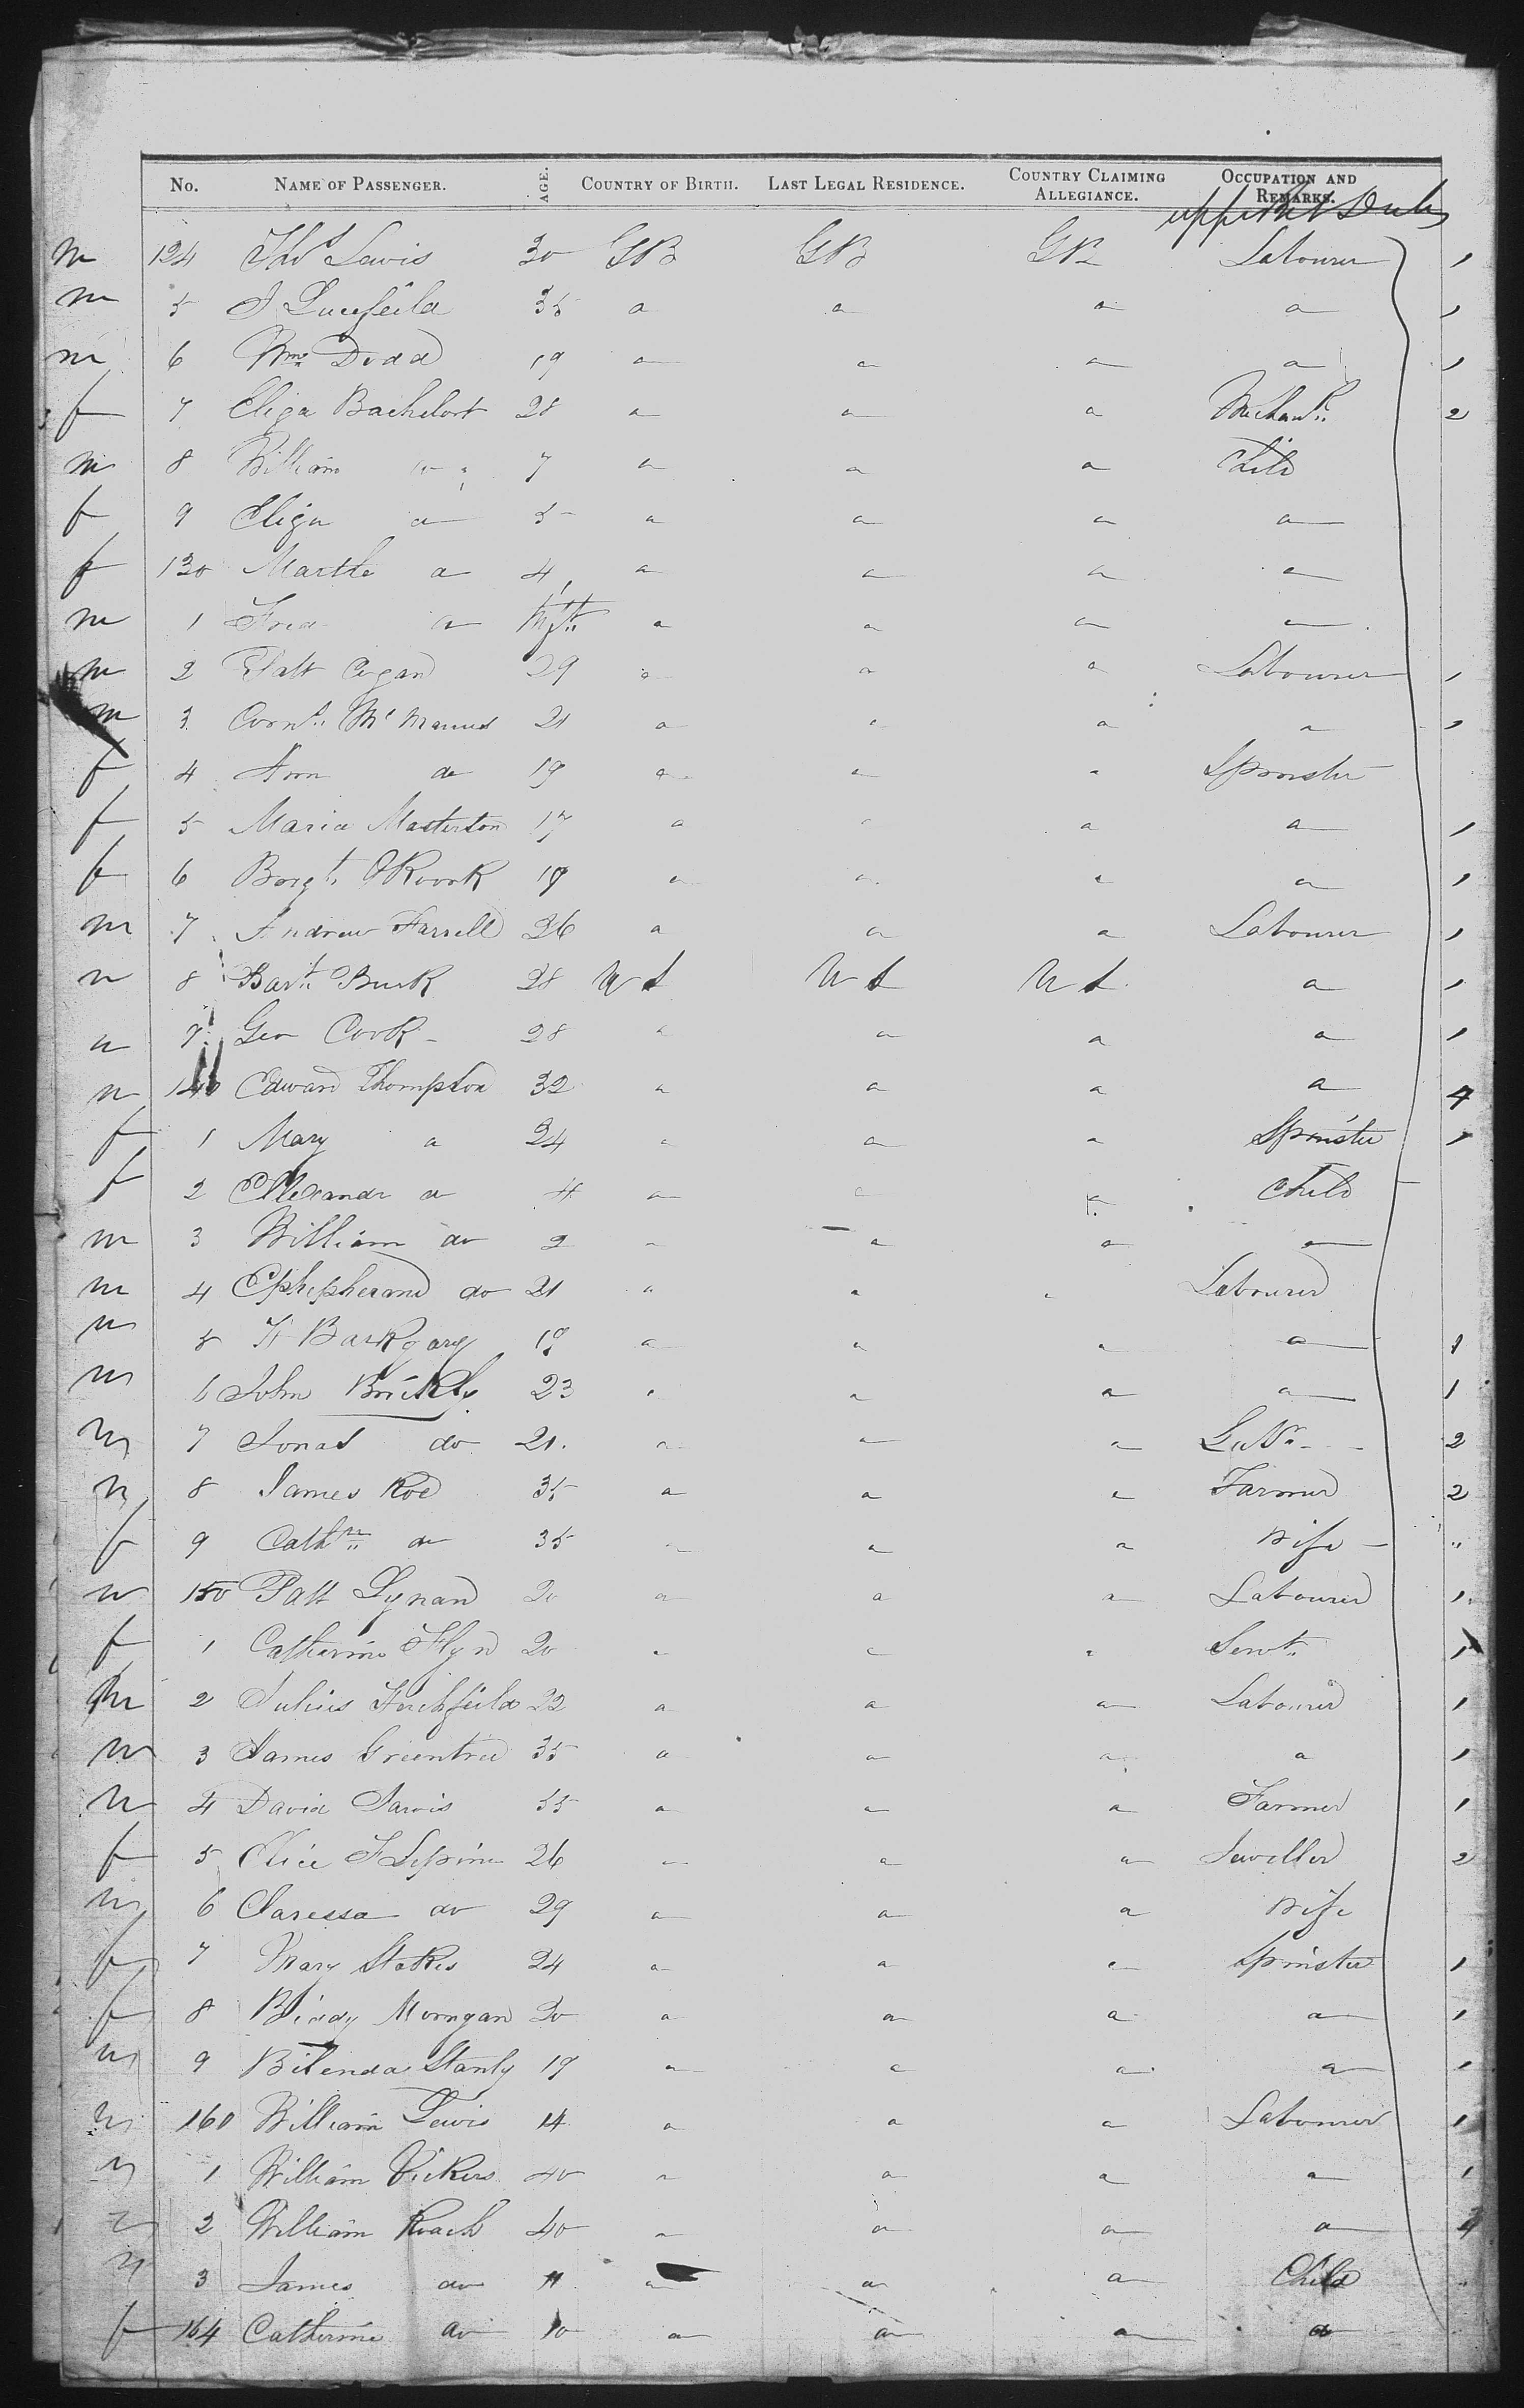 No. NAME OF PASSENGER. AGE. COUNTRY OF BIRTH. LAST LEGAL RESIDENCE. COUNTRY CLAIMING ALLEGIANCE. OCCUPATION AND REMARKS.
upper Bet Decks
m 124 Thos Lewis 30 GB GB GB Labourer 1
m 5 J Lucefeild 35 a a a a 1
m 6 Wm Dodd 19 a a a a 1
f 7 Eliza Bachelort 28 a a a Mechank 2
m 8 William a 7 a a a Child
f 9 Eliza a 5 a a a a
f 130 Martha a 4 a a a a
m 1 Fred a a a a a
m 2 Patt Cogan 29 a a a Labourer 1
m 3 Cornl McManus 21 a a a a 1
f 4 Ann do 19 a a a Spinster
f 5 Maria Masterton 17 a a a a 1
f 6 Brigt O'Roork 19 a a a a 1
m 7 Andrew Farrell 26 a a a Labourer 1
m 8 Bart Burk 28 U S U S U S a 1
m 9 Geo Cook 28 a a a a 1
m 140 Edward Thompson 32 a a a a 4
f 1 Mary a 24 a a a Spinster 1
f 2 Ellexandr a 4 a a a Child
m 3 William do 2 a a a a
m 4 Ephepherand do 21 a a a Labourer
m 5 H Barkgary 19 a a a a 1
m 6 John Brickly 23 a a a a 1
m 7 Jonas do 21 a a a 2
m 8 James Roe 35 a a a Farmer 2
f 9 Cathne do 35 a a a Wife "
m 150 Patt Lynan 20 a a a Labourer 1
f 1 Catherine Flyn 20 a a a Servt 1
m 2 Julius Finchfeild 22 a a a Labourer 1
m 3 James Greentree 35 a a a a 1
m 4 David Jarvis 35 a a a Farmer 1
f 5 Elice F Lepine 26 a a a Jeweller 2
m 6 Claressa do 29 a a a Wife
f 7 Mary Stokes 24 a a a Spinster 1
f 8 Biddy Morngan 20 a a a a 1
m 9 Bilenda Stanly 19 a a a a 1
m 160 William Lewis 14 a a a Labourer 1
m 1 William Vickers 40 a a a a 1
m 2 William Roach 40 a a a a 4
m 3 James do 11 a a a Child "
f 164 Catherine do 10 a a a do